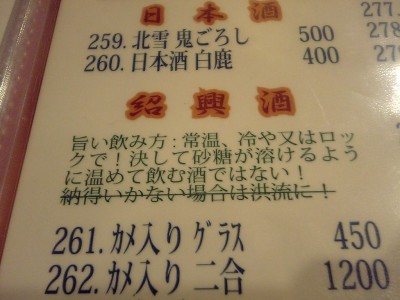 日本酒 277.
259. 北雪 鬼ごろし 500 278
260. 日本酒 白鹿 400 279
紹興酒
旨い飲み方：常温、冷や又はロッ
クで！決して砂糖が溶けるよう
に温めて飲む酒ではない！
納得いかない場合は洪流に！
261. カメ入り グラス 450
262. カメ入り 二合 1200